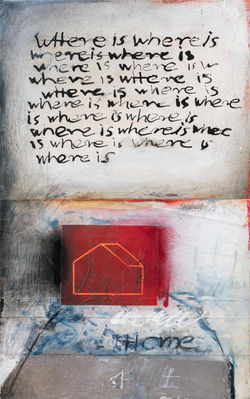 Where is where is
whereis where is
where is where is w
where is where is
where is where is
where is where is where
is where is where is
where is where is where
is where is where is
where is
Home